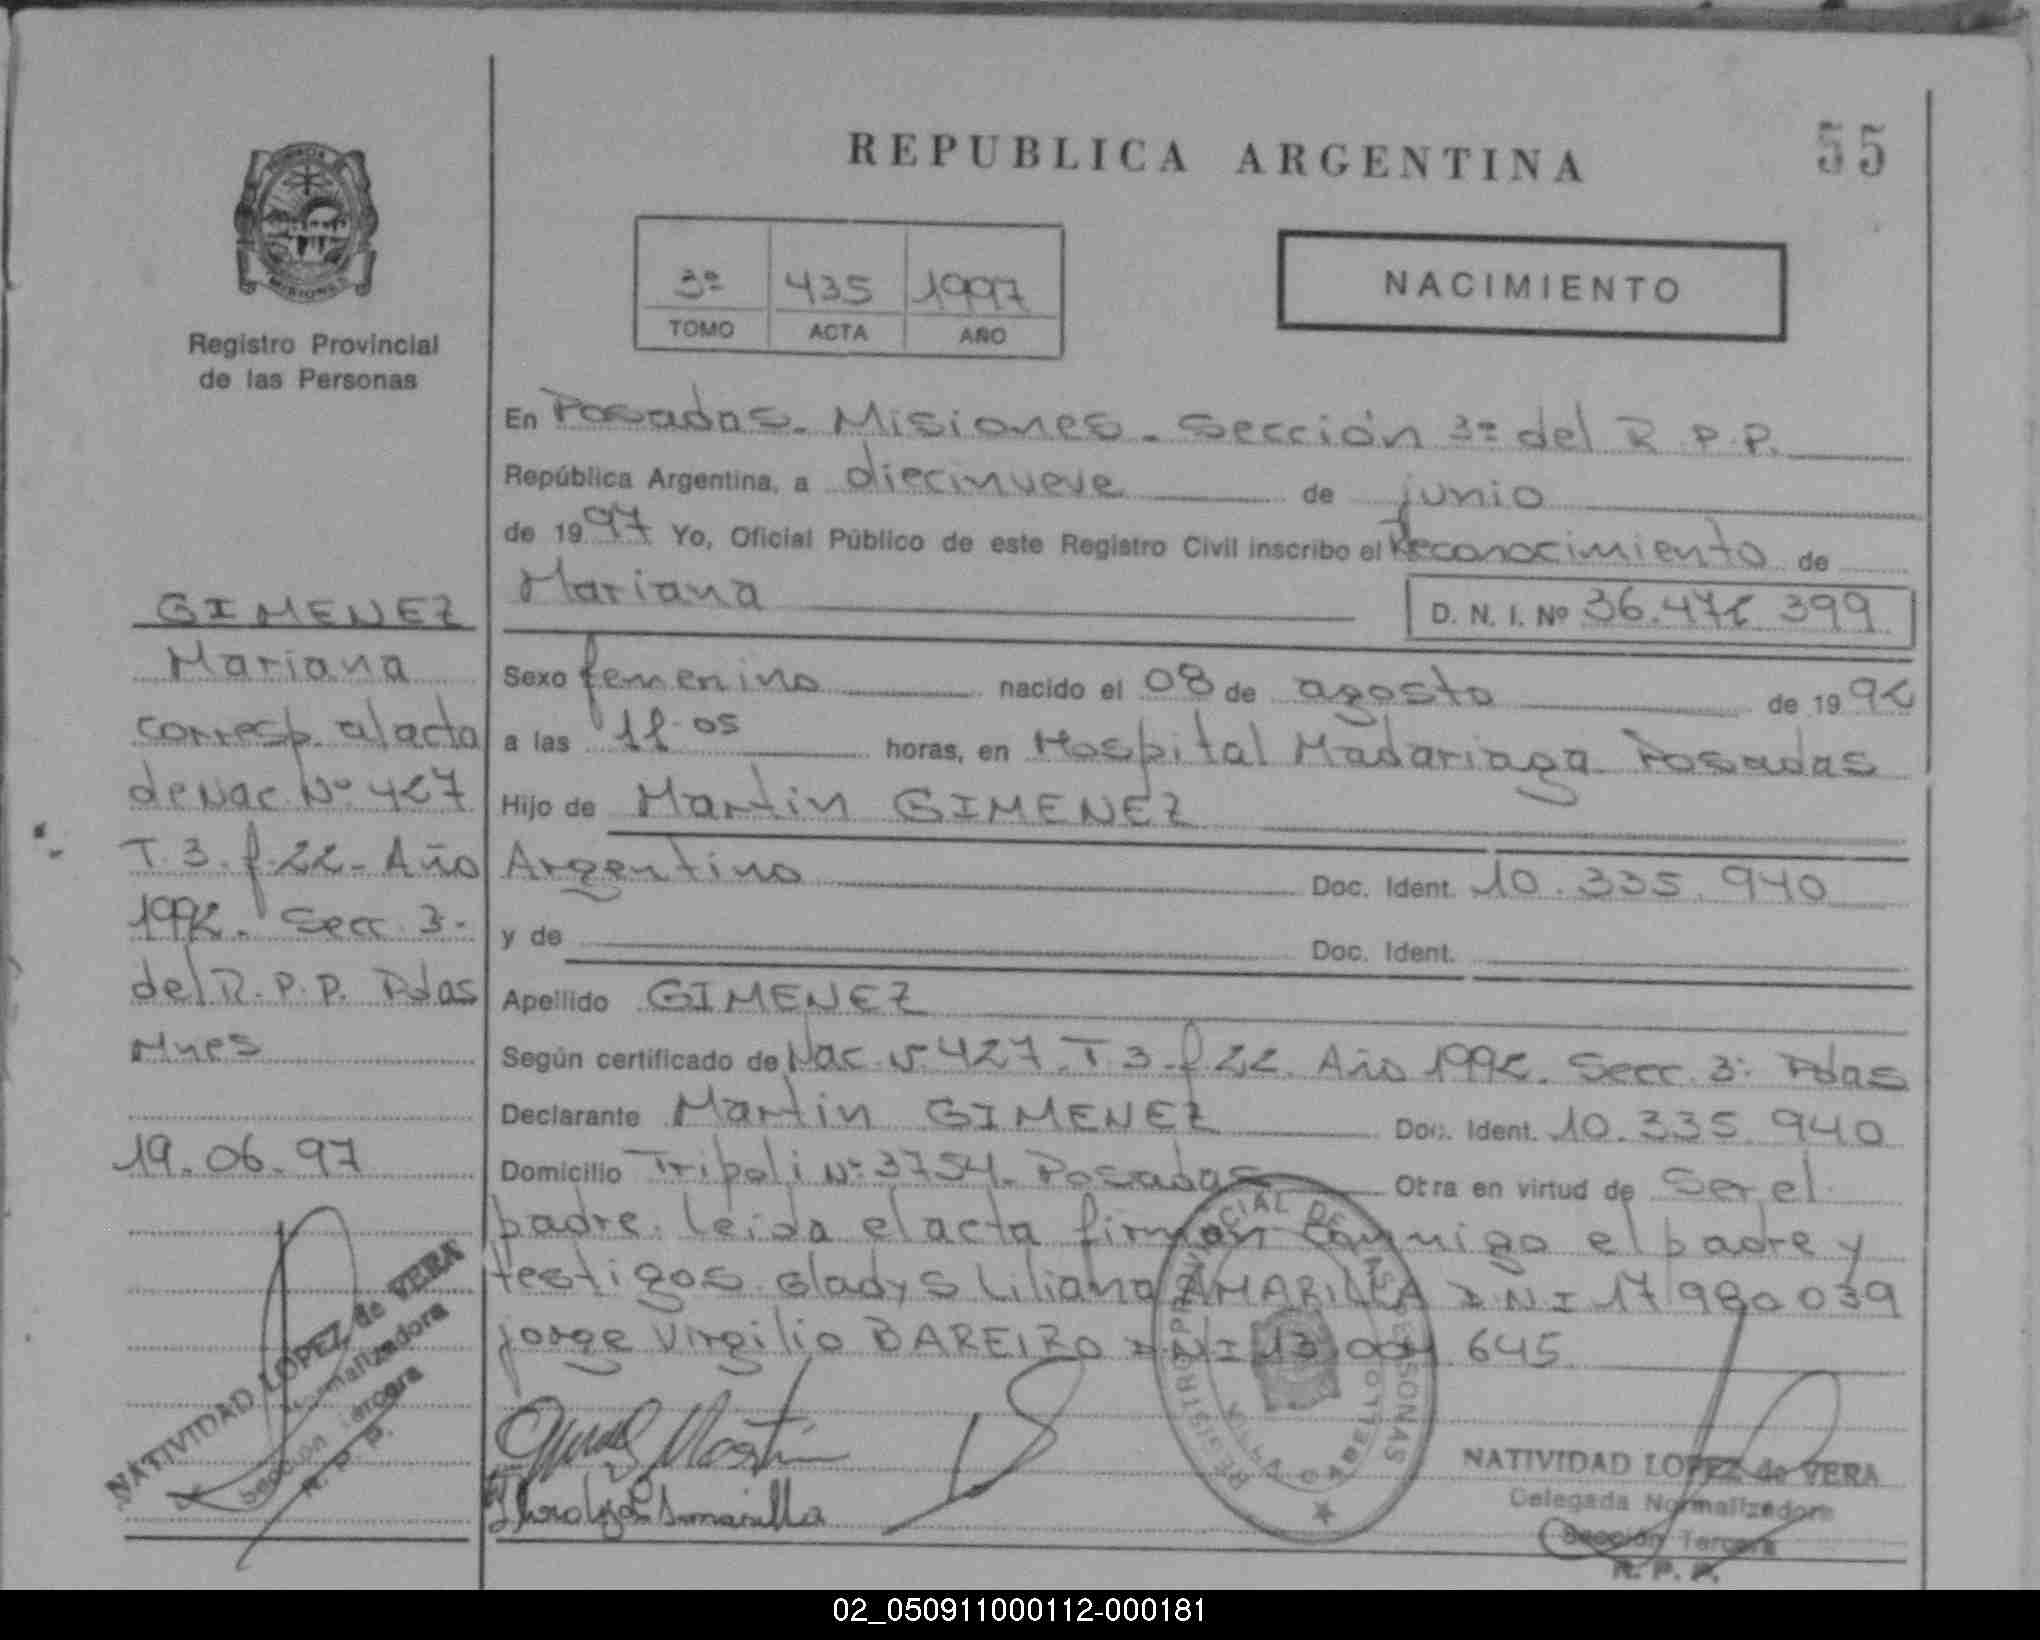 REPUBLICA ARGENTINA
55
MISIONES
Registro Provincial
de las Personas
3º 435 1997
TOMO ACTA AÑO
NACIMIENTO
En Posadas. Misiones. Sección 3º del R.P.P.
República Argentina, a diecinueve de junio
de 1997 Yo, Oficial Público de este Registro Civil inscribo el Reconocimiento de
Mariana D. N. I. Nº 36.472 399
Sexo femenino nacido el 08 de agosto de 1992
a las 11.05 horas, en Hospital Madariaga Posadas
Hijo de Martin GIMENEZ
Argentino Doc. Ident. 10.335.940
y de Doc. Ident.
Apellido GIMENEZ
Según certificado de Nac. Nº 427. T. 3. f. 22. Año 1992. Secc. 3ª Pdas
Declarante Martin GIMENEZ Doc. Ident. 10.335.940
Domicilio Tripoli Nº 3754. Posadas Otra en virtud de ser el
padre. leida el acta firman conmigo el padre y
testigos. Gladys Liliana AMARILLA DNI 17 980 039
jorge Virgilio BAREIRO DNI 13 004 645
GIMENEZ
Mariana
corresp. al acta
de Nac. Nº 427
T. 3. f. 22. Año
1992. Secc. 3.
del R.P.P. Pdas
Mnes
19.06.97
NATIVIDAD LOPEZ de VERA
Normalizadora
Sección Tercera
R. P. P.
NATIVIDAD LOPEZ de VERA
Delegada Normalizadora
Sección Tercera
R. P. P.
02_050911000112-000181